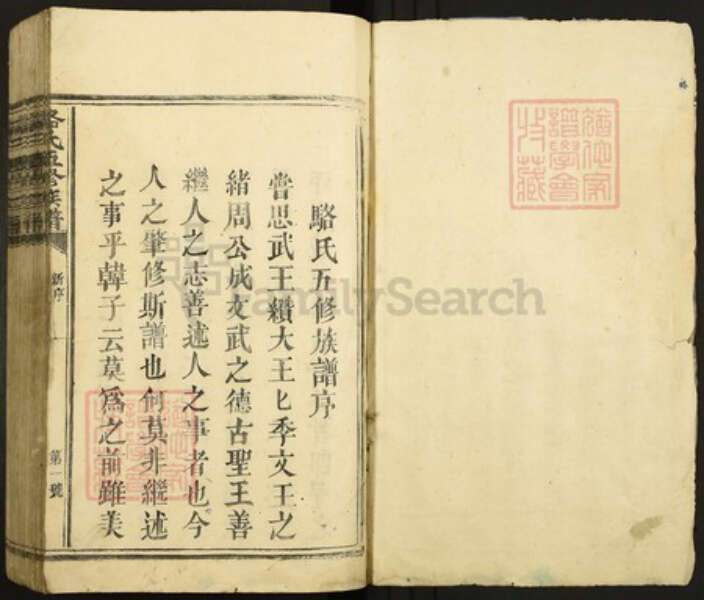 駱氏五修族譜序
嘗思武王纘大王王季文王之
緒周公成文武之德古聖王善
繼人之志善述人之事者也今
人之肇修斯譜也何莫非繼述
之事乎韓子云莫為之前雖美
駱氏五修族譜
新序
第一號
FamilySearch